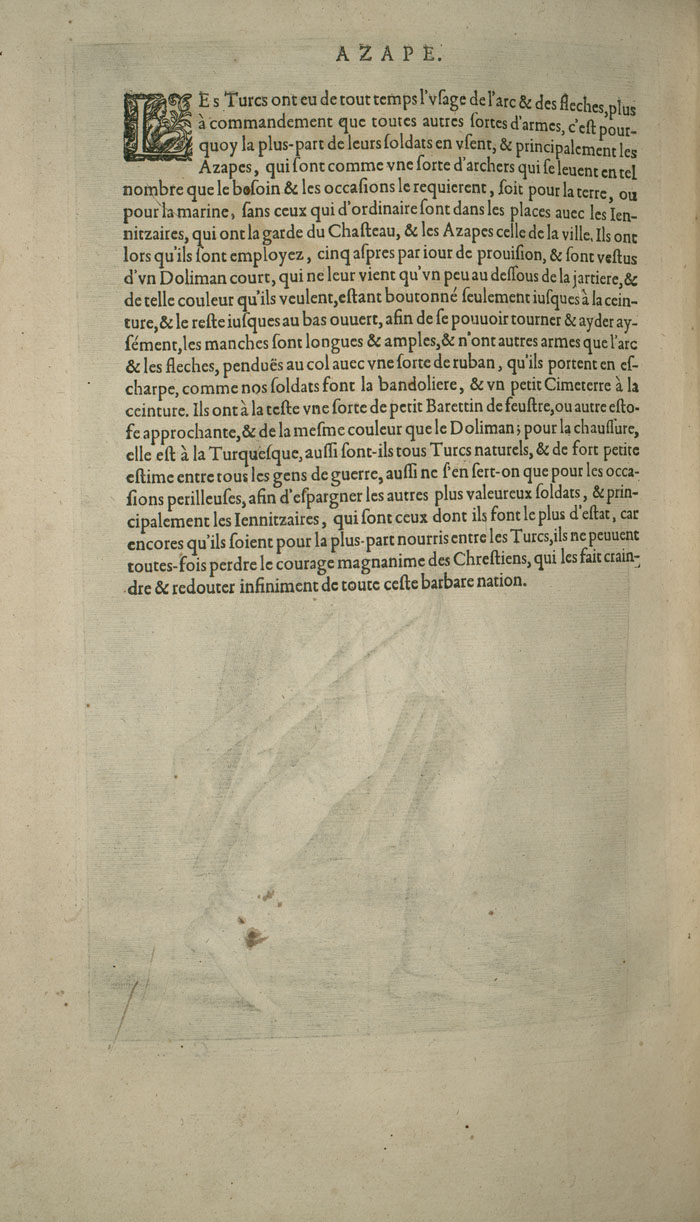 AZAPE.
LEs Turcs ont eu de tout temps l'vſage de l'arc & des fleches, plus
à commandement que toutes autres ſortes d'armes, c'eſt pour-
quoy la plus-part de leurs ſoldats en vſent, & principalement les
Azapes, qui ſont comme vne ſorte d'archers qui ſe leuent en tel
nombre que le beſoin & les occaſions le requierent, ſoit pour la terre, ou
pour la marine, ſans ceux qui d'ordinaire ſont dans les places auec les Ien-
nitzaires, qui ont la garde du Chaſteau, & les Azapes celle de la ville. Ils ont
lors qu'ils ſont employez, cinq aſpres par iour de prouiſion, & ſont veſtus
d'vn Doliman court, qui ne leur vient qu'vn peu au deſſous de la jartiere, &
de telle couleur qu'ils veulent, eſtant boutonné ſeulement iuſques à la cein-
ture, & le reſte iuſques au bas ouuert, afin de ſe pouuoir tourner & ayder ay-
ſément, les manches ſont longues & amples, & n'ont autres armes que l'arc
& les fleches, penduës au col auec vne ſorte de ruban, qu'ils portent en eſ-
charpe, comme nos ſoldats font la bandoliere, & vn petit Cimeterre à la
ceinture. Ils ont à la teſte vne ſorte de petit Barettin de feuſtre, ou autre eſto-
fe approchante, & de la meſme couleur que le Doliman; pour la chauſſure,
elle eſt à la Turqueſque, auſſi ſont-ils tous Turcs naturels, & de fort petite
eſtime entre tous les gens de guerre, auſſi ne ſ'en ſert-on que pour les occa-
ſions perilleuſes, afin d'eſpargner les autres plus valeureux ſoldats, & prin-
cipalement les Iennitzaires, qui ſont ceux dont ils font le plus d'eſtat, car
encores qu'ils ſoient pour la plus-part nourris entre les Turcs, ils ne peuuent
toutes-fois perdre le courage magnanime des Chreſtiens, qui les fait crain-
dre & redouter infiniment de toute ceſte barbare nation.